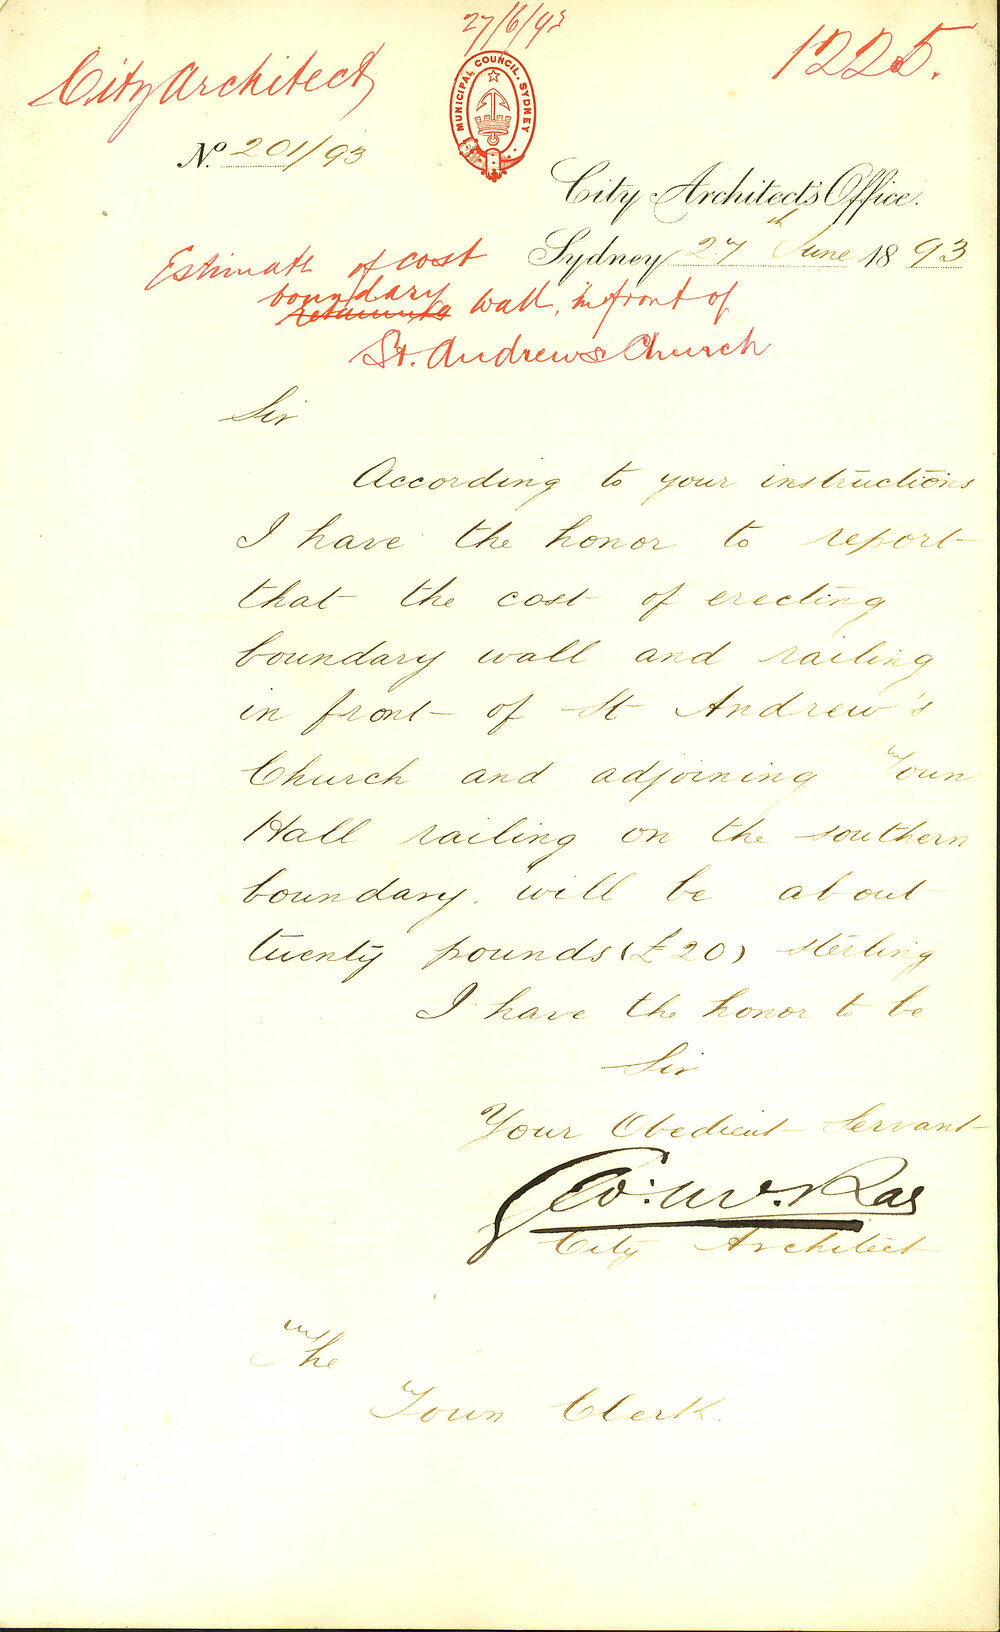 27/6/93
City Architect
1225.
MUNICIPAL COUNCIL. SYDNEY
No. 201/93
City Architect's Office.
Sydney 27th June 1893
Estimate of cost
boundary
retaining wall, in front of
St. Andrews Church
Sir
According to your instructions
I have the honor to report
that the cost of erecting
boundary wall and railing
in front of St Andrew's
Church and adjoining Town
Hall railing on the southern
boundary. will be about
twenty pounds (£20) sterling
I have the honor to be
Sir
Your Obedient Servant
Geo: McRae
City Architect
The
Town Clerk.